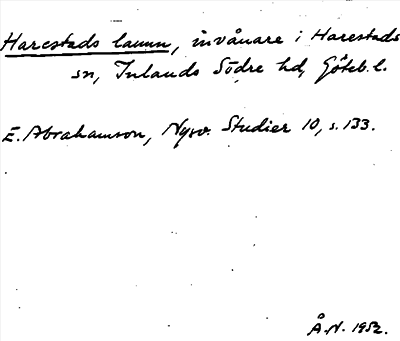 Harestads lamm, invånare i Harestads
sn, Inlands Södre hd, Göteb. l.
E. Abrahamson, Nysv. Studier 10, s. 133.
Å. N. 1952.